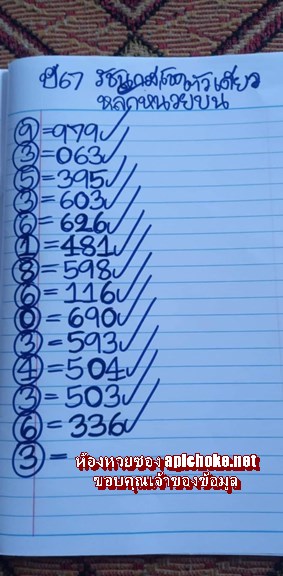 ปี67 วิธีนับสูตรตัวเดียว
หลักหน่วยบน
9 = 979 ✓
3 = 063 ✓
5 = 395 ✓
3 = 603 ✓
6 = 626 ✓
1 = 481 ✓
8 = 598 ✓
6 = 116 ✓
0 = 690 ✓
3 = 593 ✓
4 = 504 ✓
3 = 503 ✓
6 = 336 ✓
3 =
ห้องหวยซอง apichoke.net
ขอบคุณเจ้าของข้อมูล